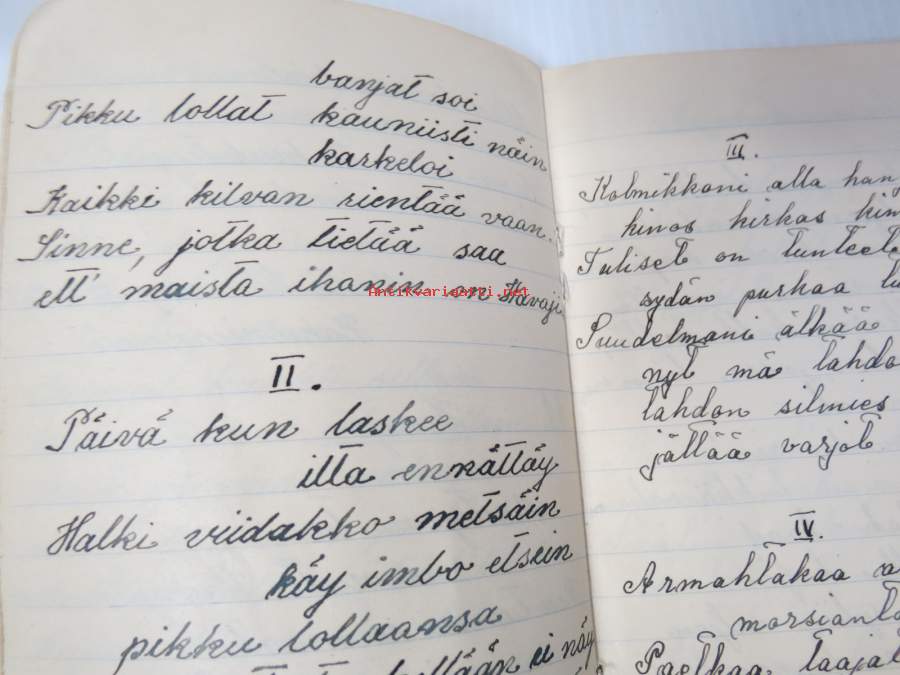 banjat soi
Pikku lollat kauniisti näin
karkeloi
Kaikki kilvan rientää vaan.
Sinne, jotka tietää saa
ett' maista ihanin on Havaji
II.
Päivä kun laskee
ilta ennättäy
Halki viidakko metsäin
käy imbo etsein
pikku lollaansa
ei näy
III.
Kolmikkoni alla han
hinos hirkas him
Tuliset on tunteet
sydän purhaa tu
Suudelmani älkää
nyt mä tahdo
tahdon silmies
jättää varjot
IV.
Armahtakaa a
morsianta
Paetkaa taajat
Antikvariaatti.net